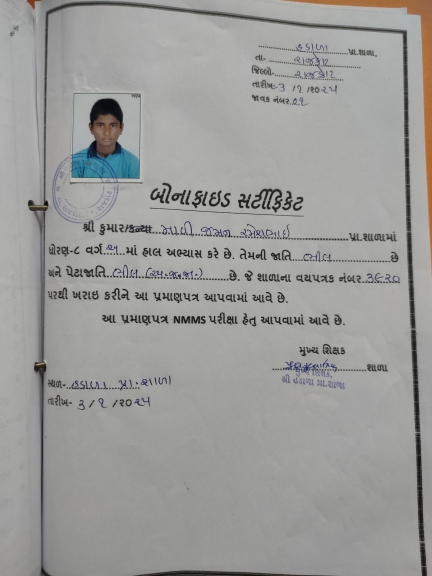 હડાળા પ્રા.શાળા.
તા- રાજકોટ
જિલ્લો- રાજકોટ
તારીખ-3 /1 /૨૦૨૫
જાવક નંબર.૦૧
બોનાફાઇડ સર્ટીફિકેટ
શ્રી કુમાર/કન્યા માવી જીગ્નેશ રમેશભાઈ પ્રા.શાળામાં
ધોરણ-૮ વર્ગ અ માં હાલ અભ્યાસ કરે છે. તેમની જાતિ ભીલ છે
અને પેટાજાતિ ભીલ (અ.જ.જા.) છે. જે શાળાના વયપત્રક નંબર 3૬૨૦
પરથી ખરાઇ કરીને આ પ્રમાણપત્ર આપવામાં આવે છે.
આ પ્રમાણપત્ર NMMS પરીક્ષા હેતુ આપવામાં આવે છે.
મુખ્ય શિક્ષક
શાળા
મુખ્ય શિક્ષક,
શ્રી હડાળા પ્રા.શાળા
સ્થળ- હડાળા પ્રા.શાળા
તારીખ- 3 /1 /૨૦૨૫